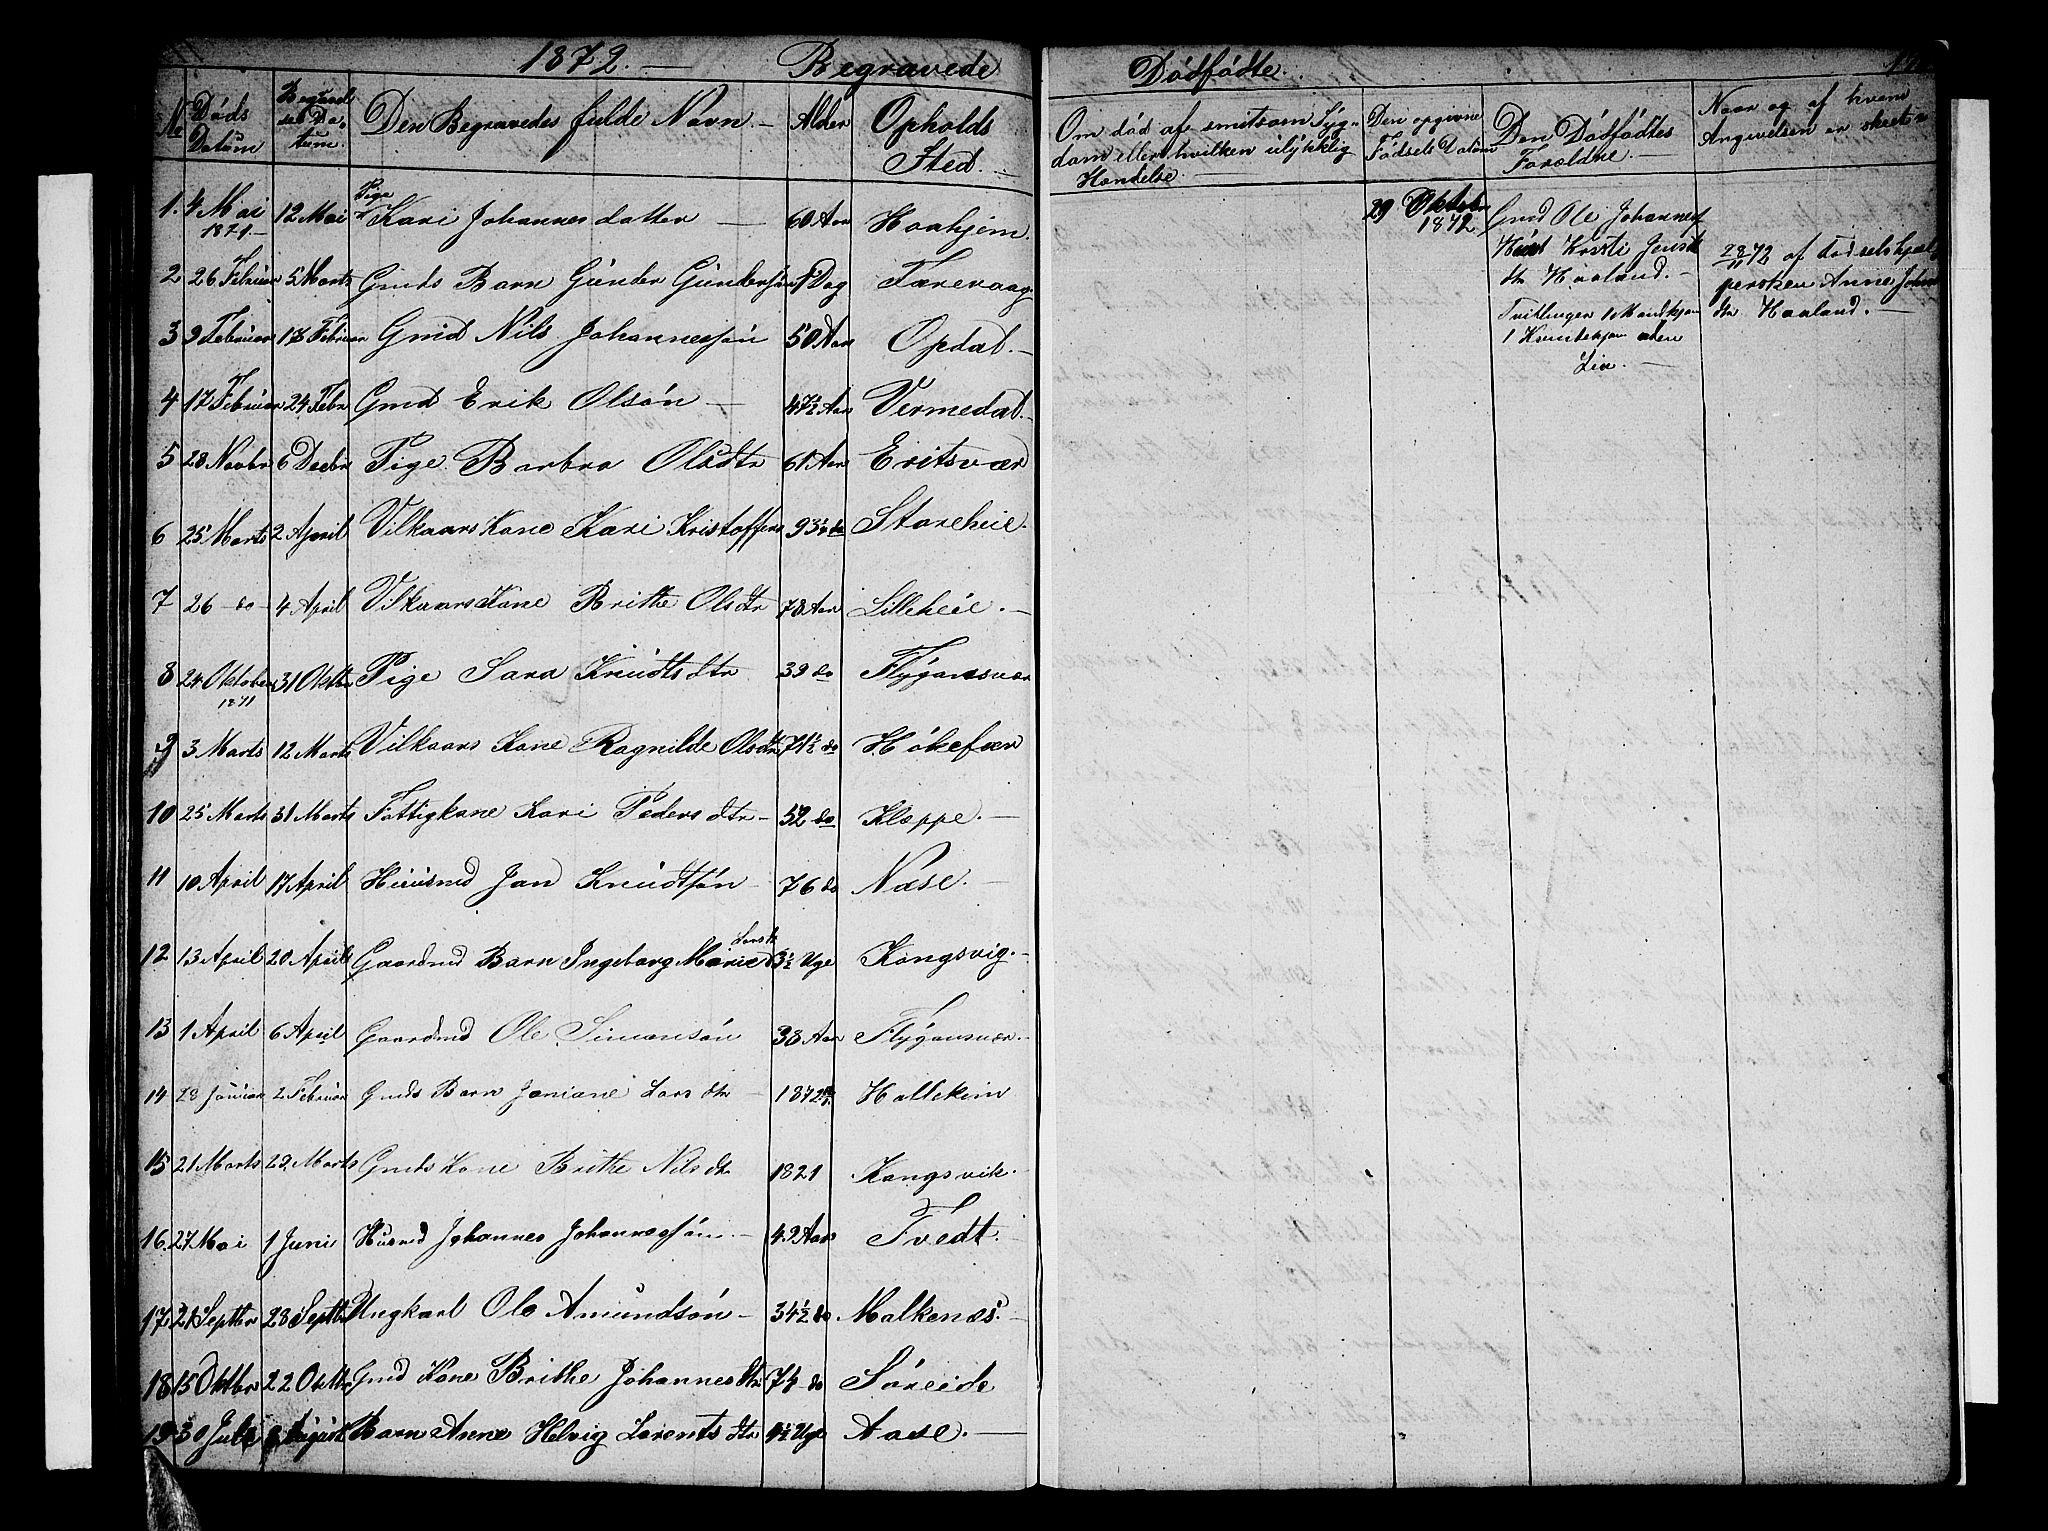 1872. — Begravede
№ Døds Datum Begravelses Datum. Den Begravedes fulde Navn. — Alder Opholds Sted. —
1. 4 Mai 1871. — 12 Mai Pige Kari Johannesdatter — 60 Aar Haahjem
2 26 Februar 5 Marts Gmds Barn Gunder Gundersøn 1 Dag Færevaag
3 9 Februar 17 Februar Gmd Nils Johannessøn 50 Aar Opdal. —
4 17 Februar 24 Febr Gmd Erik Olsøn — 47½ Aar Vermedal. —
5 28 Novbr 6 Decbr Pige Barbro Olsdtr 61 Aar Eritsvær
6 25 Marts 2 April Vilkaars Kone Kari Kristoffers 93½ do Storeheie.
7 26 — do — 4 April Vilkaars Kone Brithe Olsdtr 78 Aar Lilleheie. —
8 24 Oktober 1871 31 Oktbr Pige Sara Knudtsdtr 39 do Flygansvær
9 3 Marts 12 Marts Vilkaars Kone Ragnilde Olsdtr 74½ do Høkefær
10 25 Marts 31 Marts Fattigkone Kari Peders dtr — 52 do Kleppe. —
11 10 April 17 April Huusmd Jan Knudtsøn — 76 do Næse. —
12 13 April 20 April Gaardmd Barn Ingeborg Marie Larsdtr 3½ Uge Kongsvig. —
13 1 April 6 April Gaardmd Ole Simonsøn 38 Aar Flygansvær. —
14 28 Januar 2 Februar Gmds Barn Janiane Lars dtr — 1872 Hallekim
15 21 Marts 29 Marts Gmds Kone Brithe Nils dtr 1821 Kongsvik.
16. 27 Mai 1 Juni Husmd Johannes Johannessøn. — 49 Aar Tvedt.
17 21 Septbr 28 Septbr Ungkarl Ole Amundsøn — 34½ do Malkenæs. —
18 15 Oktbr 22 Oktbr Gmd Kone Brithe Johannesdtr 74 do Søreide
19 30 Juli August Barn Anne Helvig Lorents dtr 4½ Uge Aase. —
Dødfødte.
Om død af smitsom Syg-
dom eller hvilken ulykkelig
Hændelse. —
Den opgivne
Fødsels Datum
Den Dødfødtes
Forældre. —
Naar og af hvem
Angivelsen er skeet
29 Oktobr
1872
Gmd Ole Johannes
Kirsti Jens
dtr Haaland. —
Tvillinger 1 Mandkjøn
1 Kvindekjøn uden
Liv. —
28/11 72 af Fødselshjæl
persken Anne Johns
dtr Haaland. —